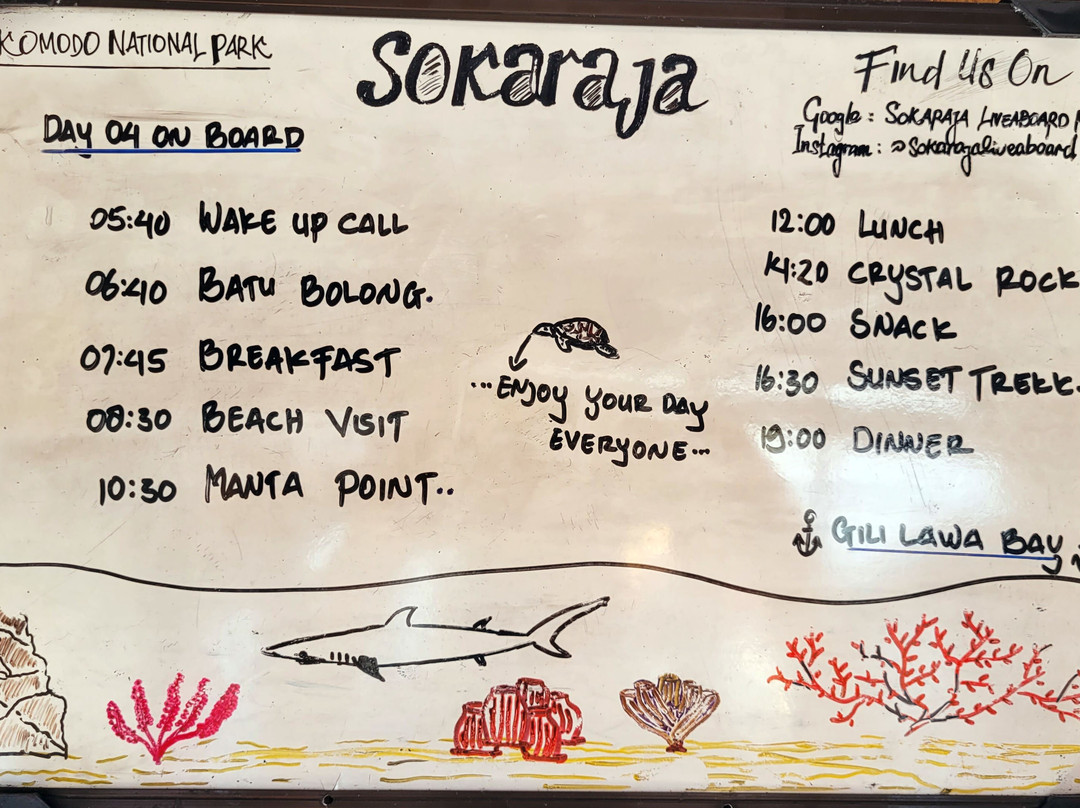 KOMODO NATIONAL PARK
Sokaraja
Find Us On
Google: SOKARAJA LIVEABOARD
Instagram: @Sokarajaliveaboard
DAY 04 ON BOARD
05:40 WAKE UP CALL
06:40 BATU BOLONG.
07:45 BREAKFAST
08:30 BEACH VISIT
10:30 MANTA POINT..
...ENJOY YOUR DAY
EVERYONE...
12:00 LUNCH
14:20 CRYSTAL ROCK
16:00 SNACK
16:30 SUNSET TREKK.
19:00 DINNER
GILI LAWA BAY